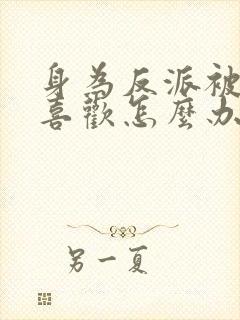 身為反派被
喜歡怎麼办
另一夏